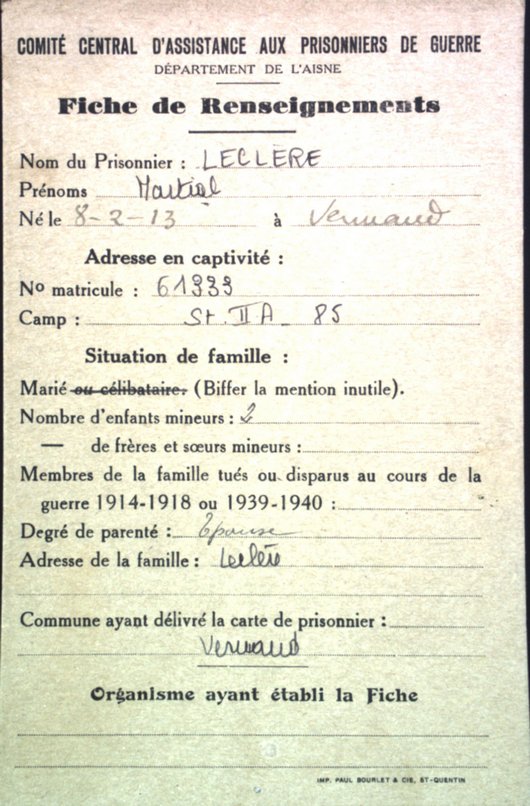 COMITÉ CENTRAL D'ASSISTANCE AUX PRISONNIERS DE GUERRE
DÉPARTEMENT DE L'AISNE
Fiche de Renseignements
Nom du Prisonnier : LECLÈRE
Prénoms Martial
Né le 8-2-13 à Vermand
Adresse en captivité :
No matricule : 61933
Camp : St. II A 85
Situation de famille :
Marié ou célibataire. (Biffer la mention inutile).
Nombre d'enfants mineurs : 2
— de frères et sœurs mineurs :
Membres de la famille tués ou disparus au cours de la
guerre 1914-1918 ou 1939-1940 :
Degré de parenté : Epouse
Adresse de la famille : Leclère
Commune ayant délivré la carte de prisonnier :
Vermand
Organisme ayant établi la Fiche
IMP. PAUL BOURLET & CIE, ST-QUENTIN